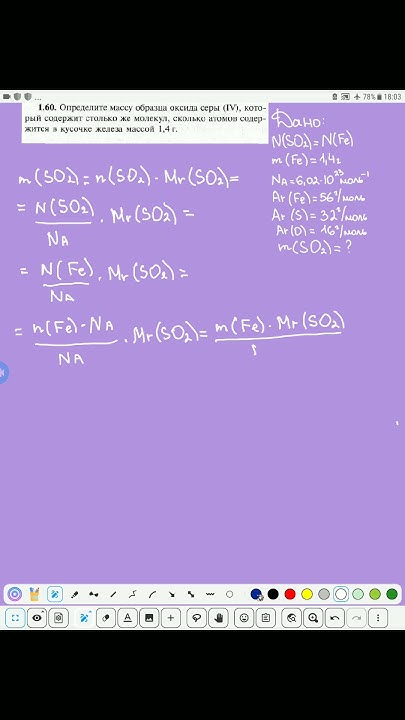 78% 18:03
1.60. Определите массу образца оксида серы (IV), кото-
рый содержит столько же молекул, сколько атомов содер-
жится в кусочке железа массой 1,4 г.
Дано:
N(SO₂)=N(Fe)
m(Fe)=1,4г
NA=6,02·10²³моль⁻¹
Ar(Fe)=56г/моль
Ar(S)=32г/моль
Ar(O)=16г/моль
m(SO₂)=?
m(SO₂)=n(SO₂)·Mr(SO₂)=
= N(SO₂)/NA · Mr(SO₂)=
= N(Fe)/NA · Mr(SO₂)=
= n(Fe)·NA/NA · Mr(SO₂)= m(Fe)·Mr(SO₂)